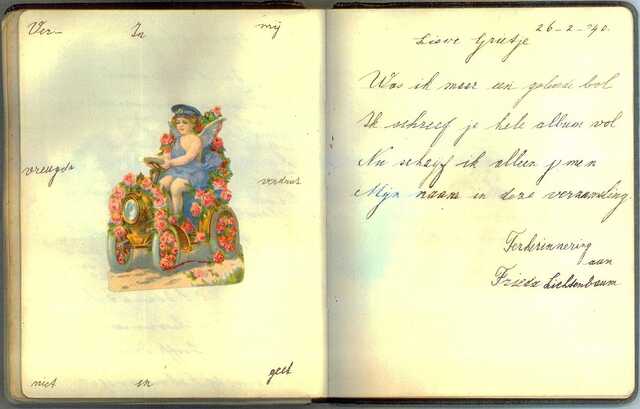 Ver-
In
mij
vreugde
verdriet
niet
en
geet
26-2-'40.
Lieve Greetje
Was ik maar een geleerde bol
Ik schreef je hele album vol
Nu schrijf ik alleen
Mijn naam in deze verzamling
Ter herinnering
aan
Frieda Lichtenbaum